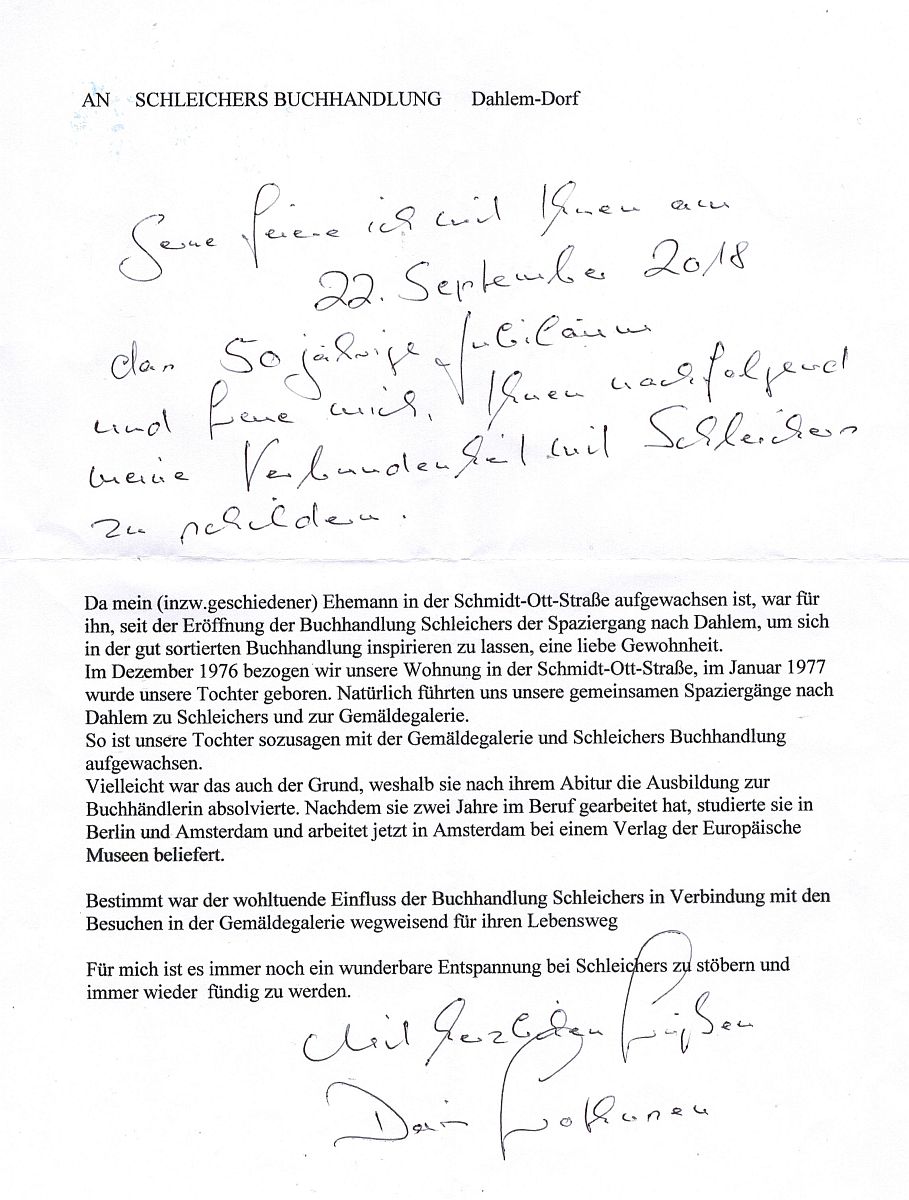 AN SCHLEICHERS BUCHHANDLUNG Dahlem-Dorf
Gerne feiere ich mit Ihnen am
22. September 2018
das 50 jährige Jubiläum
und freue mich, Ihnen nachfolgend
meine Verbundenheit mit Schleichers
zu schildern.
Da mein (inzw.geschiedener) Ehemann in der Schmidt-Ott-Straße aufgewachsen ist, war für
ihn, seit der Eröffnung der Buchhandlung Schleichers der Spaziergang nach Dahlem, um sich
in der gut sortierten Buchhandlung inspirieren zu lassen, eine liebe Gewohnheit.
Im Dezember 1976 bezogen wir unsere Wohnung in der Schmidt-Ott-Straße, im Januar 1977
wurde unsere Tochter geboren. Natürlich führten uns unsere gemeinsamen Spaziergänge nach
Dahlem zu Schleichers und zur Gemäldegalerie.
So ist unsere Tochter sozusagen mit der Gemäldegalerie und Schleichers Buchhandlung
aufgewachsen.
Vielleicht war das auch der Grund, weshalb sie nach ihrem Abitur die Ausbildung zur
Buchhändlerin absolvierte. Nachdem sie zwei Jahre im Beruf gearbeitet hat, studierte sie in
Berlin und Amsterdam und arbeitet jetzt in Amsterdam bei einem Verlag der Europäische
Museen beliefert.
Bestimmt war der wohltuende Einfluss der Buchhandlung Schleichers in Verbindung mit den
Besuchen in der Gemäldegalerie wegweisend für ihren Lebensweg
Für mich ist es immer noch ein wunderbare Entspannung bei Schleichers zu stöbern und
immer wieder fündig zu werden.
Mit herzlichen Grüßen